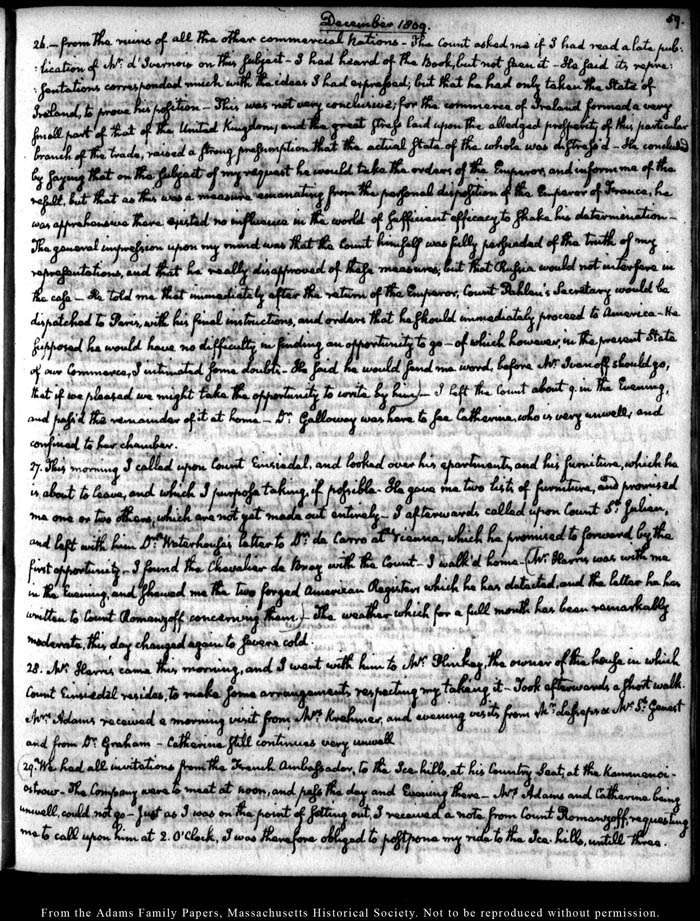 December 1809.
59.
26. — from the ruins of all the other commercial Nations — The Count asked me if I had read a late pub-
:lication of Mr. d'Ivernois on this subject — I had heard of the Book, but not seen it — He said its repre:
:sentations corresponded much with the ideas I had expressed; but that he had only taken the State of
Ireland, to prove his position — This was not very conclusive; for the commerce of Ireland formed a very
small part of that of the United Kingdom; and the great stress laid upon the alledged prosperity of this particular
branch of the trade, raised a strong presumption that the actual State of the whole was distress'd — He concluded
by saying that on the subject of my request he would take the orders of the Emperor, and inform me of the
result, but that as this was a measure emanating from the personal disposition of the Emperor of France, he
was apprehensive there existed no influence in the world of sufficient efficacy to shake his determination —
The general impression upon my mind was that the Count himself was fully persuaded of the truth of my
representations, and that he really disapproved of these measures; but that Russia would not interfere in
the case — He told me that immediately after the return of the Emperor, Count Pahlen's Secretary would be
dispatched to Paris, with his final instructions, and orders that he should immediately proceed to America — He
supposed he would have no difficulty in finding an opportunity to go — of which however, in the present State
of our Commerce, I intimated some doubt — He said he would send me word, before Mr. Ivanoff should go,
that if we pleased we might take the opportunity to write by him) — I left the Count about 9. in the Evening,
and pass'd the remainder of it at home — Dr. Galloway was here to see Catherine, who is very unwell, and
confined to her chamber.
27. This morning I called upon Count Einsiedel, and looked over his apartments, and his furniture, which he
is about to leave, and which I purpose taking, if possible — He gave me two lists of furniture, and promised
me one or two others, which are not yet made out entirely — I afterwards called upon Count St. Julien,
and left with him Dr. Waterhouse's letter to Dr. de Carro at Vienna, which he promised to forward by the
first opportunity. I found the Chevalier de Bray with the Count — I walk'd home. (Mr. Harris was with me
in the Evening, and shewed me the two forged American Registers which he has detected, and the letter he has
written to Count Romanzoff concerning them.) — The weather which for a full month has been remarkably
moderate, this day changed again to severe cold.
28. Mr. Harris came this morning, and I went with him to Mr. Plinkey, the owner of the house in which
Count Einsiedel resides, to make some arrangements respecting my taking it — Took afterwards a short walk.
Mrs. Adams received a morning visit from Mrs. Krehmer, and evening visits from Mr. Lesseps & Mr. St. Genest
and from Dr. Graham — Catherine still continues very unwell
(29. We had all invitations from the French Ambassador, to the Ice hills, at his Country Seat, at the Kammenoi-
ostrow — The Company were to meet at noon, and pass the day and Evening there — Mrs. Adams and Catherine being
unwell, could not go — Just as I was on the point of setting out, I received a note from Count Romanzoff, requesting
me to call upon him at 2. O'Clock, I was therefore obliged to postpone my ride to the Ice-hills, untill three.
From the Adams Family Papers, Massachusetts Historical Society. Not to be reproduced without permission.